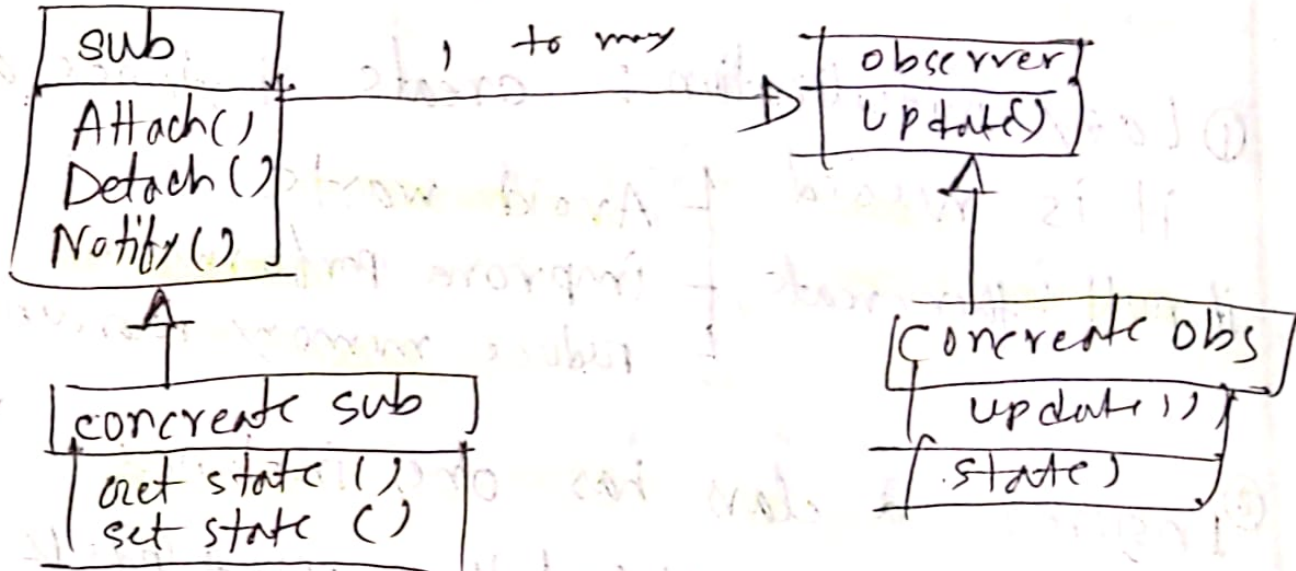 sub
Attach()
Detach()
Notify()
1 to many
observer
update()
concreate sub
get state ()
set state ()
concreate obs
update()
state)